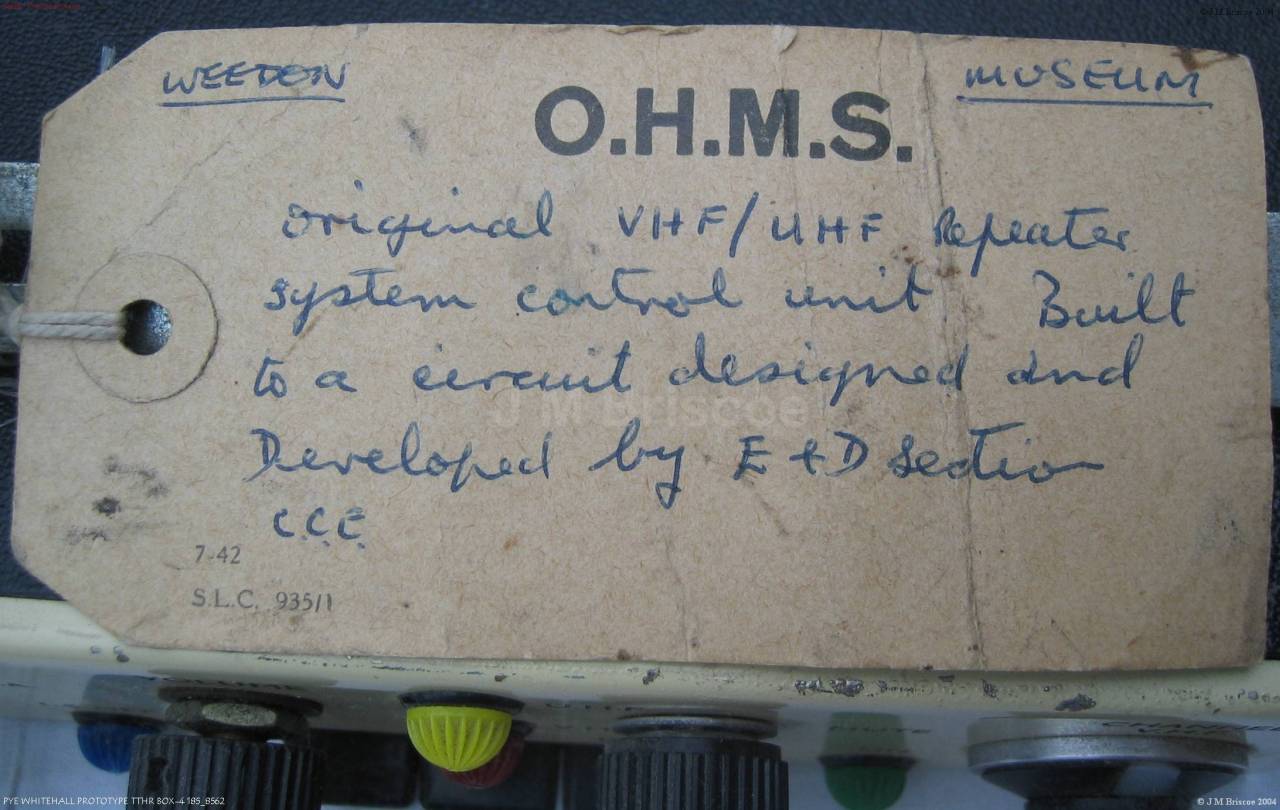 © J M Briscoe 2004
WEEDON MUSEUM
O.H.M.S.
original VHF/UHF Repeater
system control unit Built
to a circuit designed and
J M Briscoe
Developed by E + D Section
C.C.E.
7-42
S.L.C. 935/1
VOLUME
PYE WHITEHALL PROTOTYPE TTHR BOX-4 185_8562
© J M Briscoe 2004